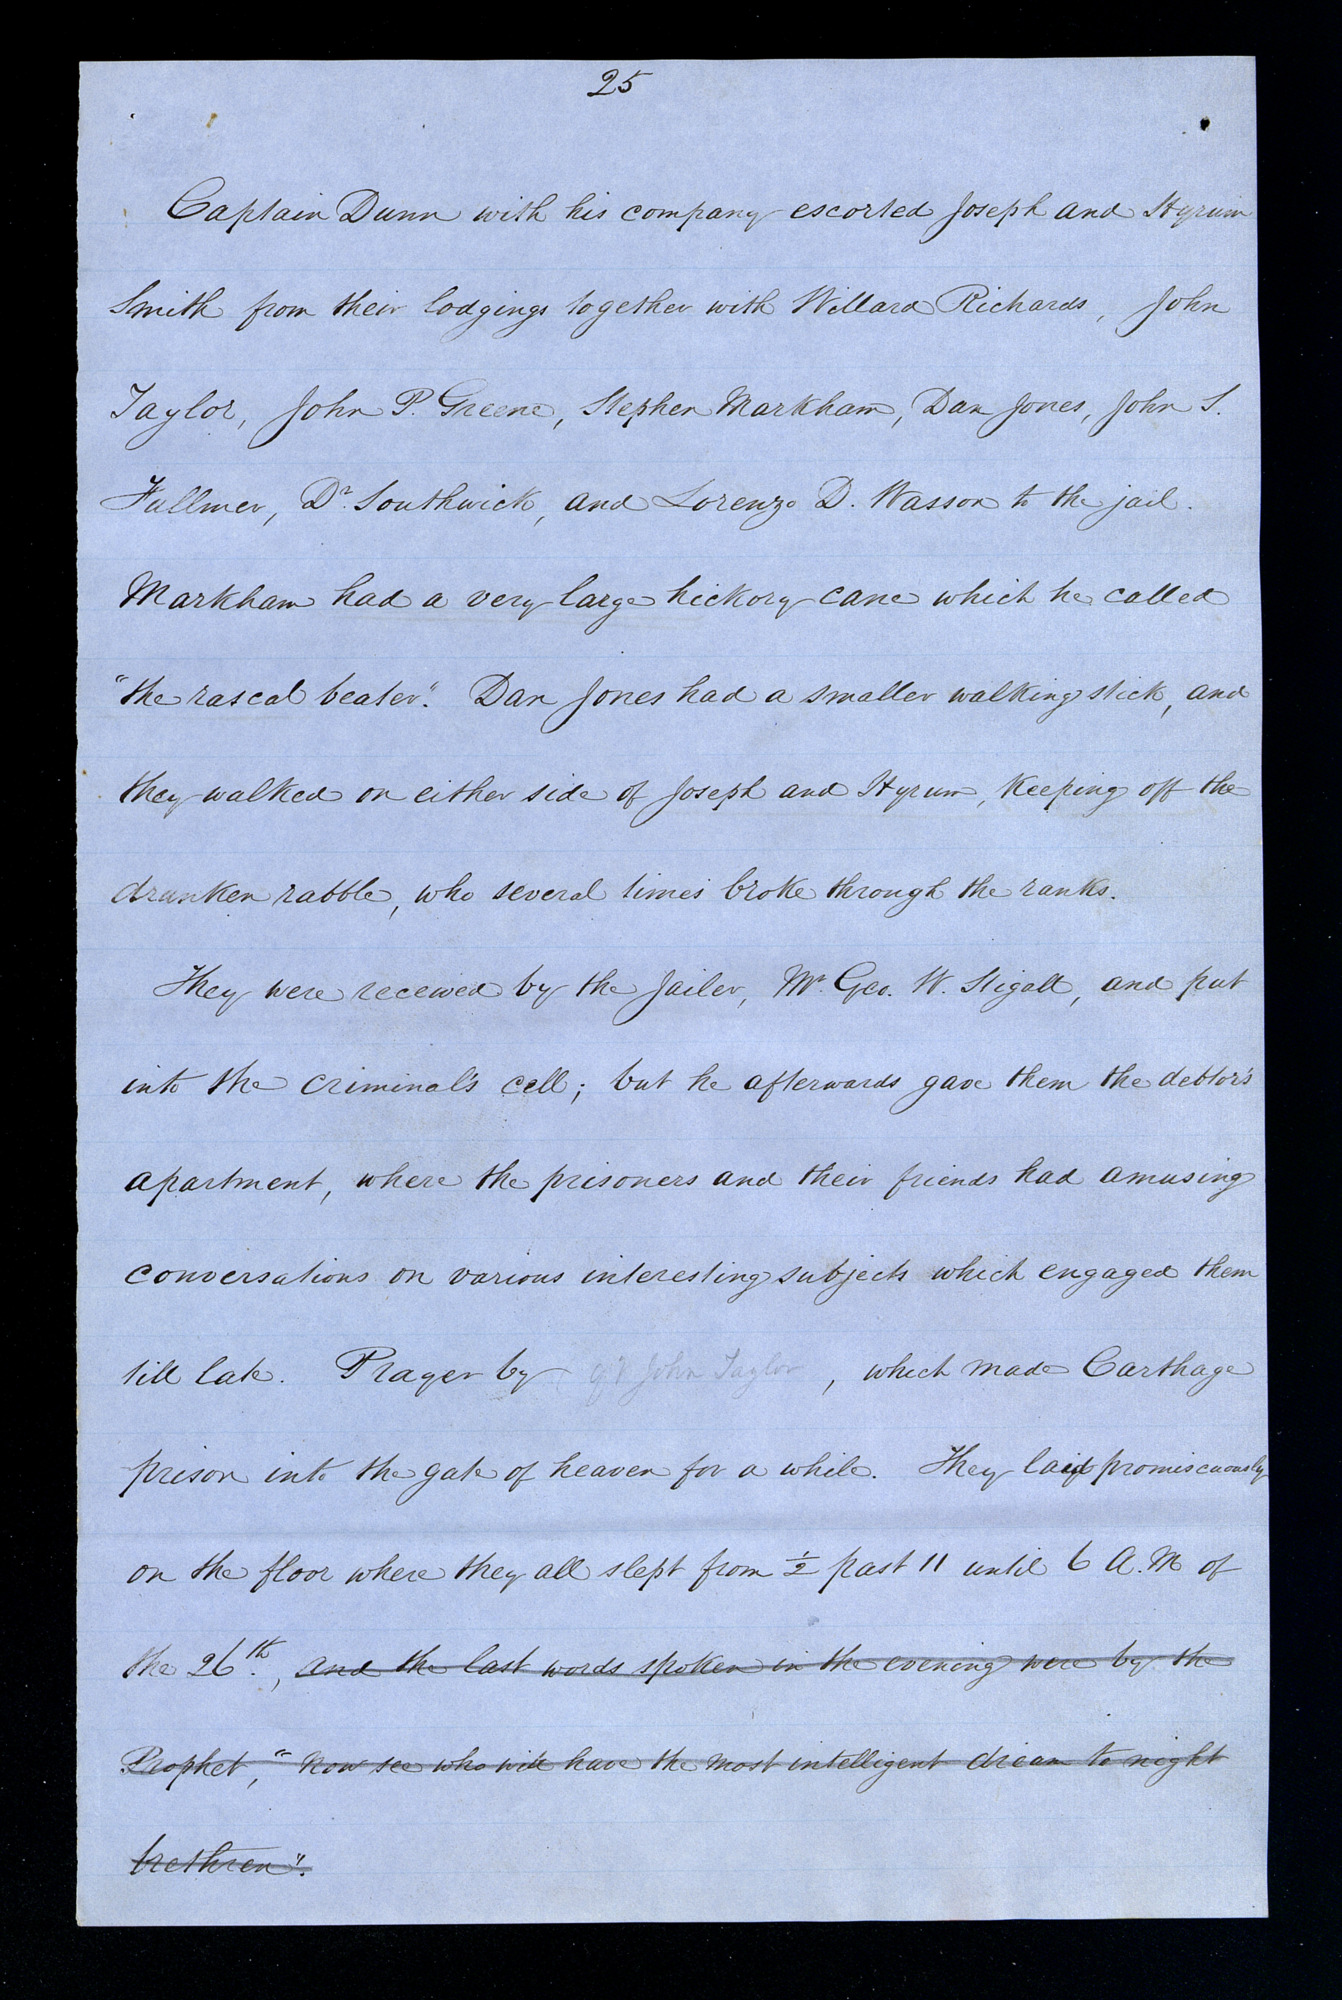 25
Captain Dunn with his company escorted Joseph and Hyrum
Smith from their lodgings together with Willard Richards, John
Taylor, John P. Greene, Stephen Markham, Dan Jones, John S.
Fullmer, Dr. Southwick, and Lorenzo D. Wasson to the jail.
Markham had a very large hickory cane which he called
"the rascal beater". Dan Jones had a smaller walking stick, and
they walked on either side of Joseph and Hyrum, keeping off the
drunken rabble, who several times broke through the ranks.
They were received by the Jailer, Mr. Geo. W. Stigall, and put
into the criminal's cell; but he afterwards gave them the debtor's
apartment, where the prisoners and their friends had amusing
conversations on various interesting subjects which engaged them
till late. Prayer by John Taylor, which made Carthage
prison into the gate of heaven for a while. They laid promiscuously
on the floor where they all slept from ½ past 11 until 6 A.M of
the 26th., and the last words spoken in the evening were by the
Prophet, "Now see who will have the most intelligent dream to night
brethren".